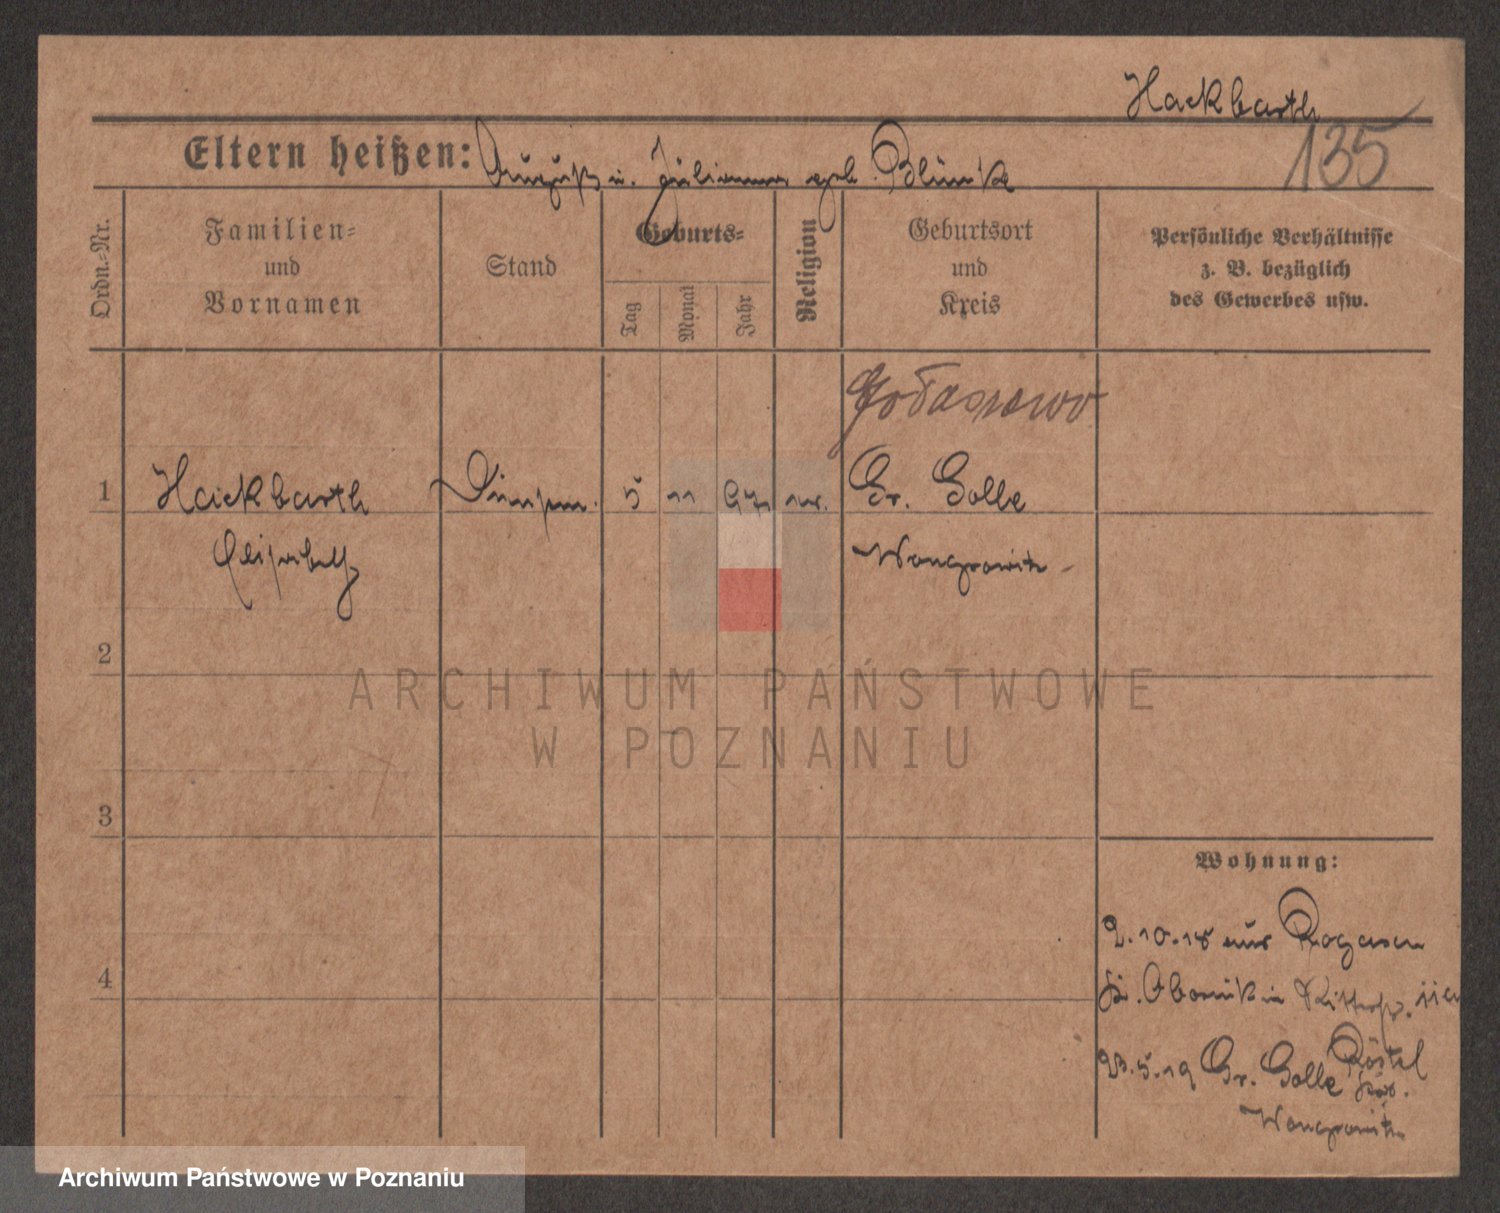 Hackbarth
135
Eltern heißen: August u. Julianna geb. Blümke
Ordn.-Nr.
Familien-
und
Vornamen
Stand
Geburts-
Tag
Monat
Jahr
Religion
Geburtsort
und
Kreis
Persönliche Verhältnisse
z. B. bezüglich
des Gewerbes usw.
Gołaszewo
1 Hackbarth 5 11 97 Gr. Golle
Elisabeth Wongrowitz
2
3
4
Wohnung:
2.10.18 aus Rogasen
Kr. Obornik in Ritterstr.
23.5.19 Gr. Golle
Wongrowitz
ARCHIWUM PAŃSTWOWE
W POZNANIU
Archiwum Państwowe w Poznaniu